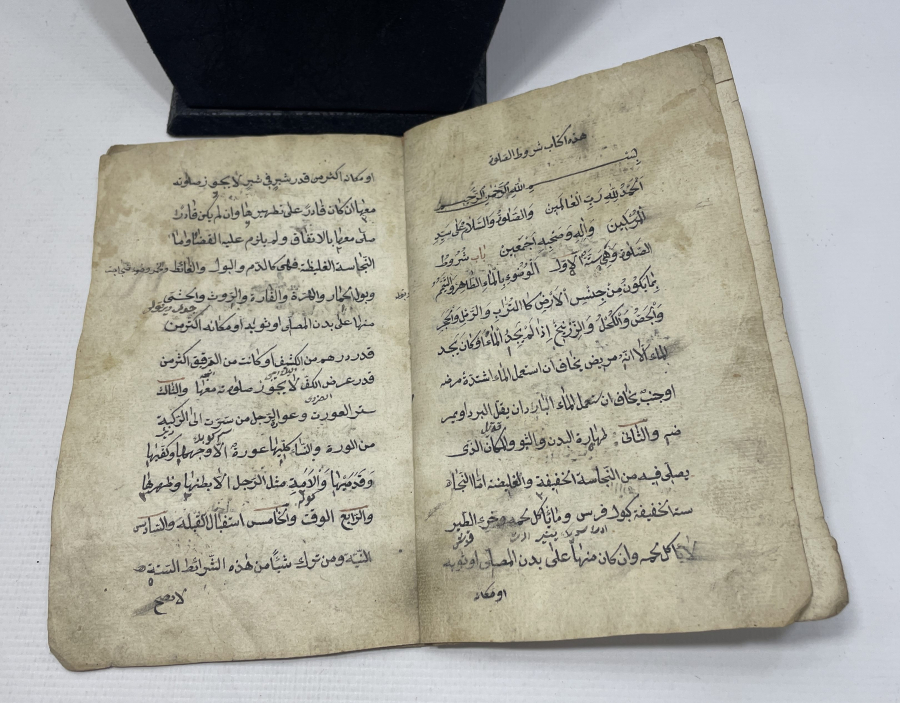 هذه الكتاب شروط الصلوة
بسم الله الرحمن الرحيم
اَلحَمدُ لِلّه رَبّ العَالَمِين وَالصَلوةُ وَالسَلامُ عَلى سيّد
المُرسَلين وَآلِه وَصَحبِه اَجمَعين باب شُرُوط
الصلوة وَهِيَ سِتّة الاوّل الوُضُوء بِالمَاءِ الطاهر وَالتيَمّم
بِمَا يَكُون مِن جِنسِ الاَرض كا التراب وَالرمل والحجر
وَالجص وَالكُحل وَالزرنيخ اِذا لم يَجد الماء او كان يجد
الماء الا انّه مريض يخاف ان استعمل الماء اشتدّ مرضه
او جنب يخاف ان ستعمل الماء البارد ان يقتل البرد او يمر
ضه والثانى طهارة البدن والثوب والمكان الذى
يصلى فيه من النجاسة الخفيفة والغليضة امّا النجا
ستة الخفيفة كبول فرس وما يأكل لحمه وخرء الطير
لا يأكل لحمه وان كان منها على بدن المصلى او ثوبه
او مكانه
او مكانه اكثر من قدر شبر فى شبر لا يجوز صلوته
معها ان كان قادر على تطهيرها وان لم يكن قادرا
صلى معها بالاتفاق ولم يلزم عليه القضاء واما
النجاسة الغليظة فهى كالدم والبول والغائط
وبول الحمار والهرة والفارة والروث والخثى
منها على بدن المصلى او ثوبه او مكانه اكثر من
قدر درهم من الكثيف او كانت من الرقيق اكثر من
قدر عرض الكف لا يجوز صلوته معها والثالث
ستر العورت وعورة الرجل من سرت الى الركبة
من العورة والنساء كليها عورة الا وجهها وكفيها
وَقَدَمَيْهَا وَالاَمَةِ مثل الرّجل الا بطنها وظهرها
والرابع الوقت والخامس استقبال القبلة والسادس
النية ومن ترك شيأ من هذه الشرائط الستة
لا يصح